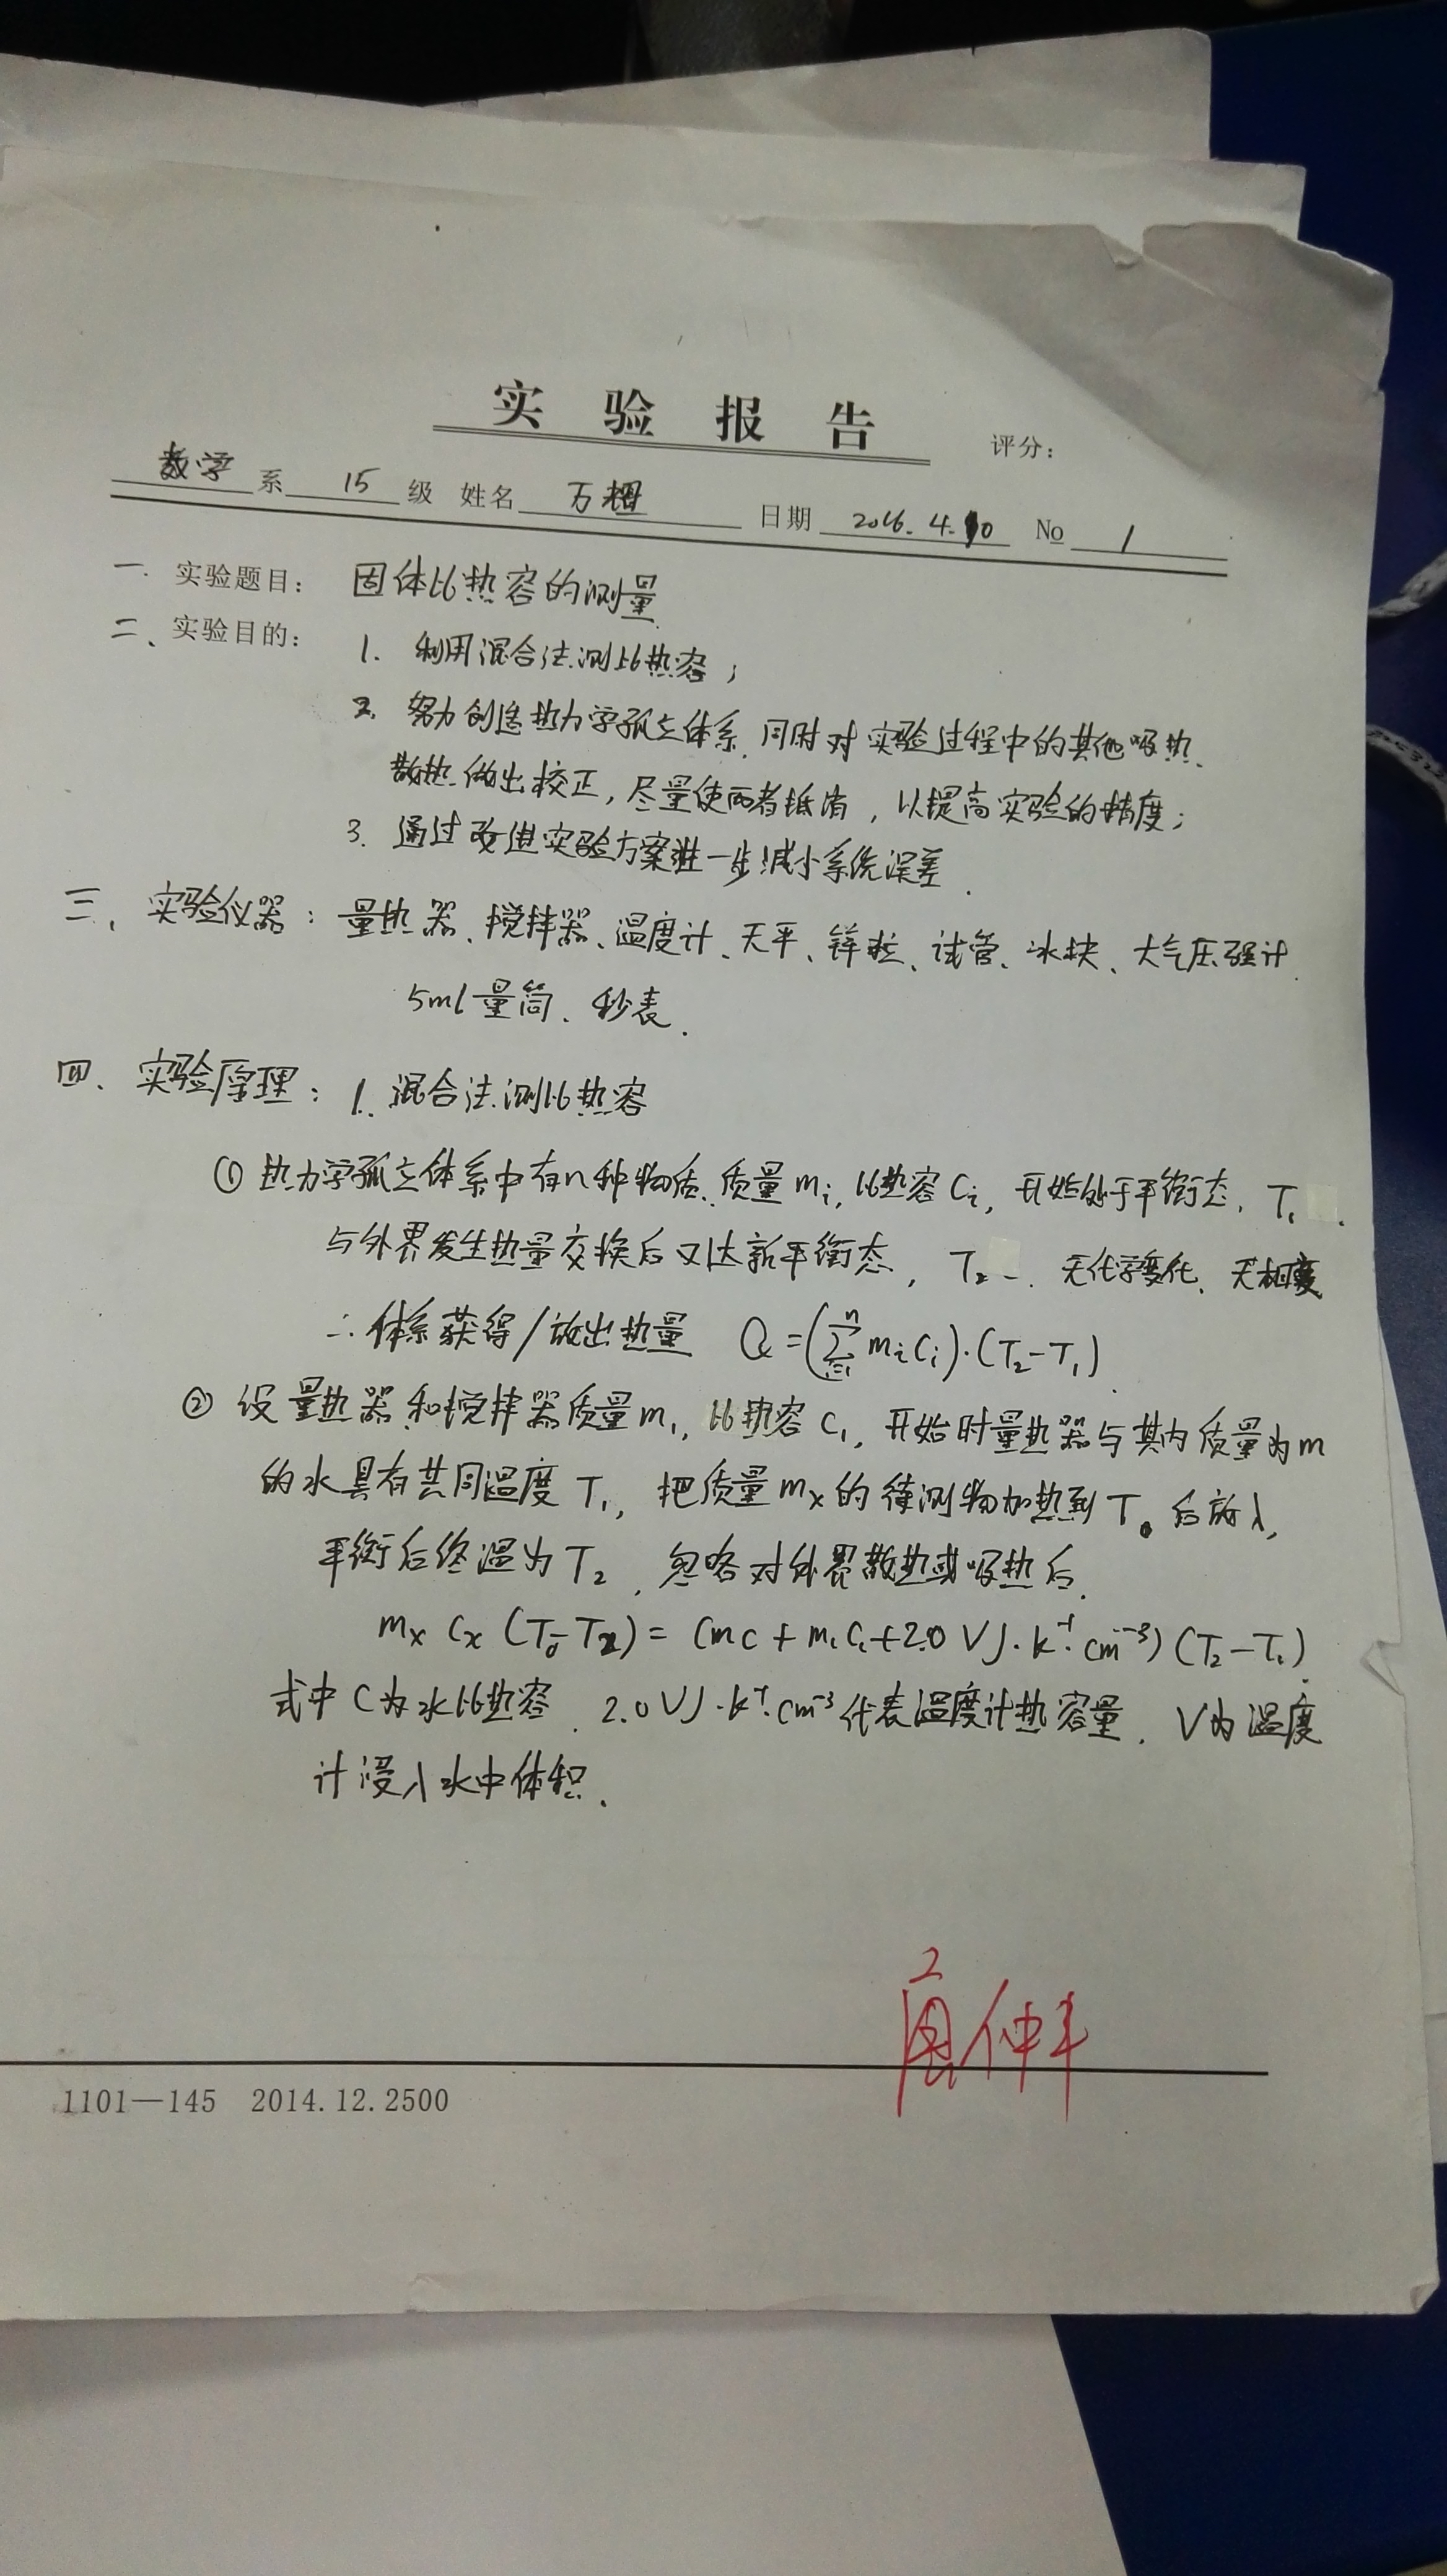 实验报告
评分：
数学系 15级 姓名 万栅 日期 2016.4.10 No 1
一. 实验题目： 固体比热容的测量
二、实验目的： 1. 利用混合法测比热容；
2. 努力创造热力学孤立体系，同时对实验过程中的其他吸热、
散热做出校正，尽量使两者抵消，以提高实验的精度；
3. 通过改进实验方案进一步减小系统误差.
三、实验仪器：量热器、搅拌器、温度计、天平、锌粒、试管、冰块、大气压强计
5ml量筒、秒表.
四、实验原理：1. 混合法测比热容
① 热力学孤立体系中有n种物质，质量mᵢ，比热容Cᵢ，开始处于平衡态，T₁.
与外界发生热量交换后又达新平衡态，T₂. 无化学变化、无相变
∴体系获得/放出热量 Q=(∑ⁿᵢ₌₁mᵢCᵢ)·(T₂-T₁)
② 设量热器和搅拌器质量m₁，比热容C₁，开始时量热器与其内质量为m
的水具有共同温度T₁，把质量mₓ的待测物加热到T₀后放入，
平衡后终温为T₂，忽略对外界散热或吸热后.
mₓCₓ(T₀-T₂)=(mc+m₁C₁+2.0VJ·K⁻¹·cm⁻³)(T₂-T₁).
式中C为水比热容，2.0VJ·K⁻¹·cm⁻³代表温度计热容量，V为温度
计浸入水中体积.
2
1101—145 2014.12.2500